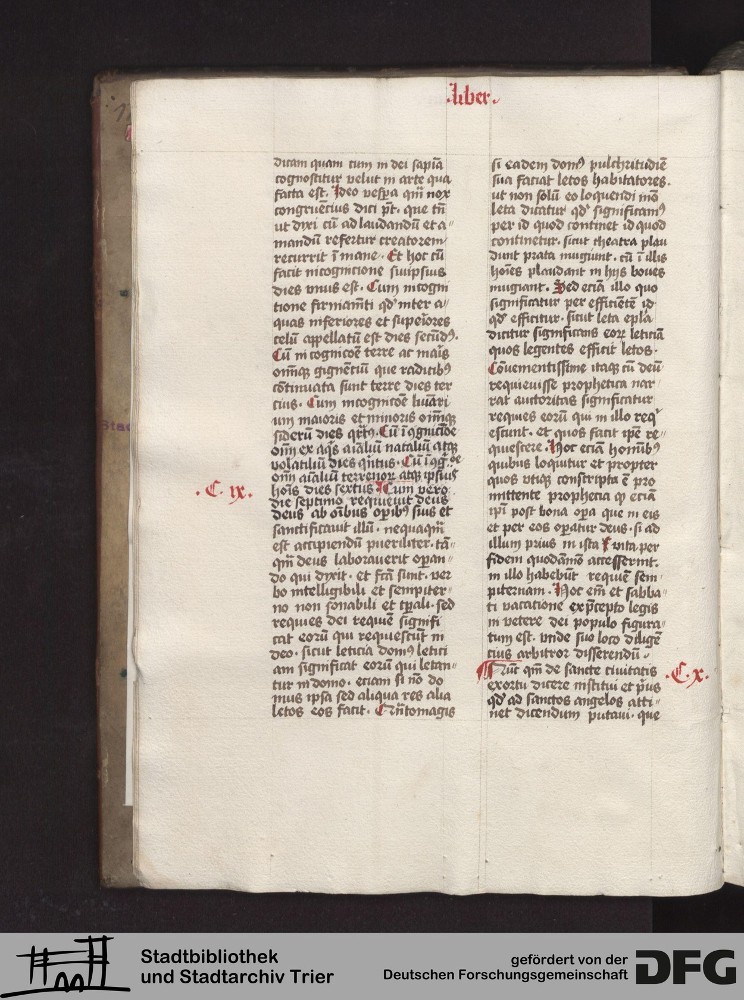 ·liber·
dicam quam cum in dei sapīa
cognoscitur velut in arte qua
facta est. Ideo vesp̄a qm̄ nox
congruencius dici pt̄. que tn̄
ut dixi cū ad laudandū et a-
mandū refertur creatorem
recurrit ī mane. Et hoc cū
facit in cognicione suiipsius
dies vnus est. Cum in cogni
tione firmamēti qd' inter a-
quas inferiores et superiores
celū appellatū est dies secūdꝰ.
Cū in cognicōe terre ac maīs
omīq; gignēciū que radicibꝰ
cōtinuata sunt terre dies ter
cius. Cum in cognicōe luīari
um maioris et minoris omīq;
siderū dies qrtꝰ. Cū ī ɔgnicōe
om̄i ex aq̄s aīaliū nataliū atq;
volatiliū dies qͥntus. Cū ī ɔg.ōe
om̄i aīaliū terrenor̄ atq; ipsiuˢ
hoīs dies sextus. Cum vero
·C· ix·
die septimo requieuit deus
deus ab oībus opibꝰ suis et
sanctificauit illū. nequaqm̄
est accipiendū pueriliter. tā-
qm̄ deus laborauerit opan-
do qui dyxit. et fctā sunt. ver
bo intelligibili et sempiter-
no non sonabili et tp̄ali. sed
requies dei requiē signifi
cat eorū qui requiescūt in
deo. sicut leticia domꝰ letici
am significat eorū qui letan-
tur in domo. eciam si nō do
mus ipsa sed aliqua res alia
letos eos facit. Cn̄tomagis
si eadem domꝰ pulchritudiē
sua faciat letos habitatores.
ut non solū eo loquendi mō
leta dicatur qd' significamꝰ
per id quod continet id quod
continetur. sicut theatra plau
dunt prata mugiunt. cū ī illis
hoīes plaudant in hijs boues
mugiant. Sed eciā illo quo
significatur per efficiētē id
qd' efficitur. sicut leta ep̄la
dicitur significans eor̄ leticiā
quos legentes efficit letos.
Cōuenientissime itaq; cū deū
requieuisse prophetica nar
rat auctoritas significatur
requies eorū qui in illo req̄
escunt. et quos facit ip̄e re-
quiescere. Hoc eciā hom̄ībꝰ
quibus loquitur et propter
quos vtiq; conscripta ē pro
mittente prophecia q' eciā
ip̄i post bona opa que in eis
et per eos opatur deus. si ad
illum prius in ista vita per
fidem quodāmō accesserint.
in illo habebūt requiē sem-
piternam. Hoc em̄ et sabba-
ti vacatione ex p̄cepto legis
in vetere dei populo figura-
tum est. vnde suo loco diligē
cius arbitror disserendū.
Nūc qm̄ de sancte ciuitatis
·C· x·
exortu dicere institui et p̄us
qd' ad sanctos angelos atti-
net dicendum putaui. que
Stadtbibliothek
und Stadtarchiv Trier
gefördert von der
Deutschen Forschungsgemeinschaft
DFG